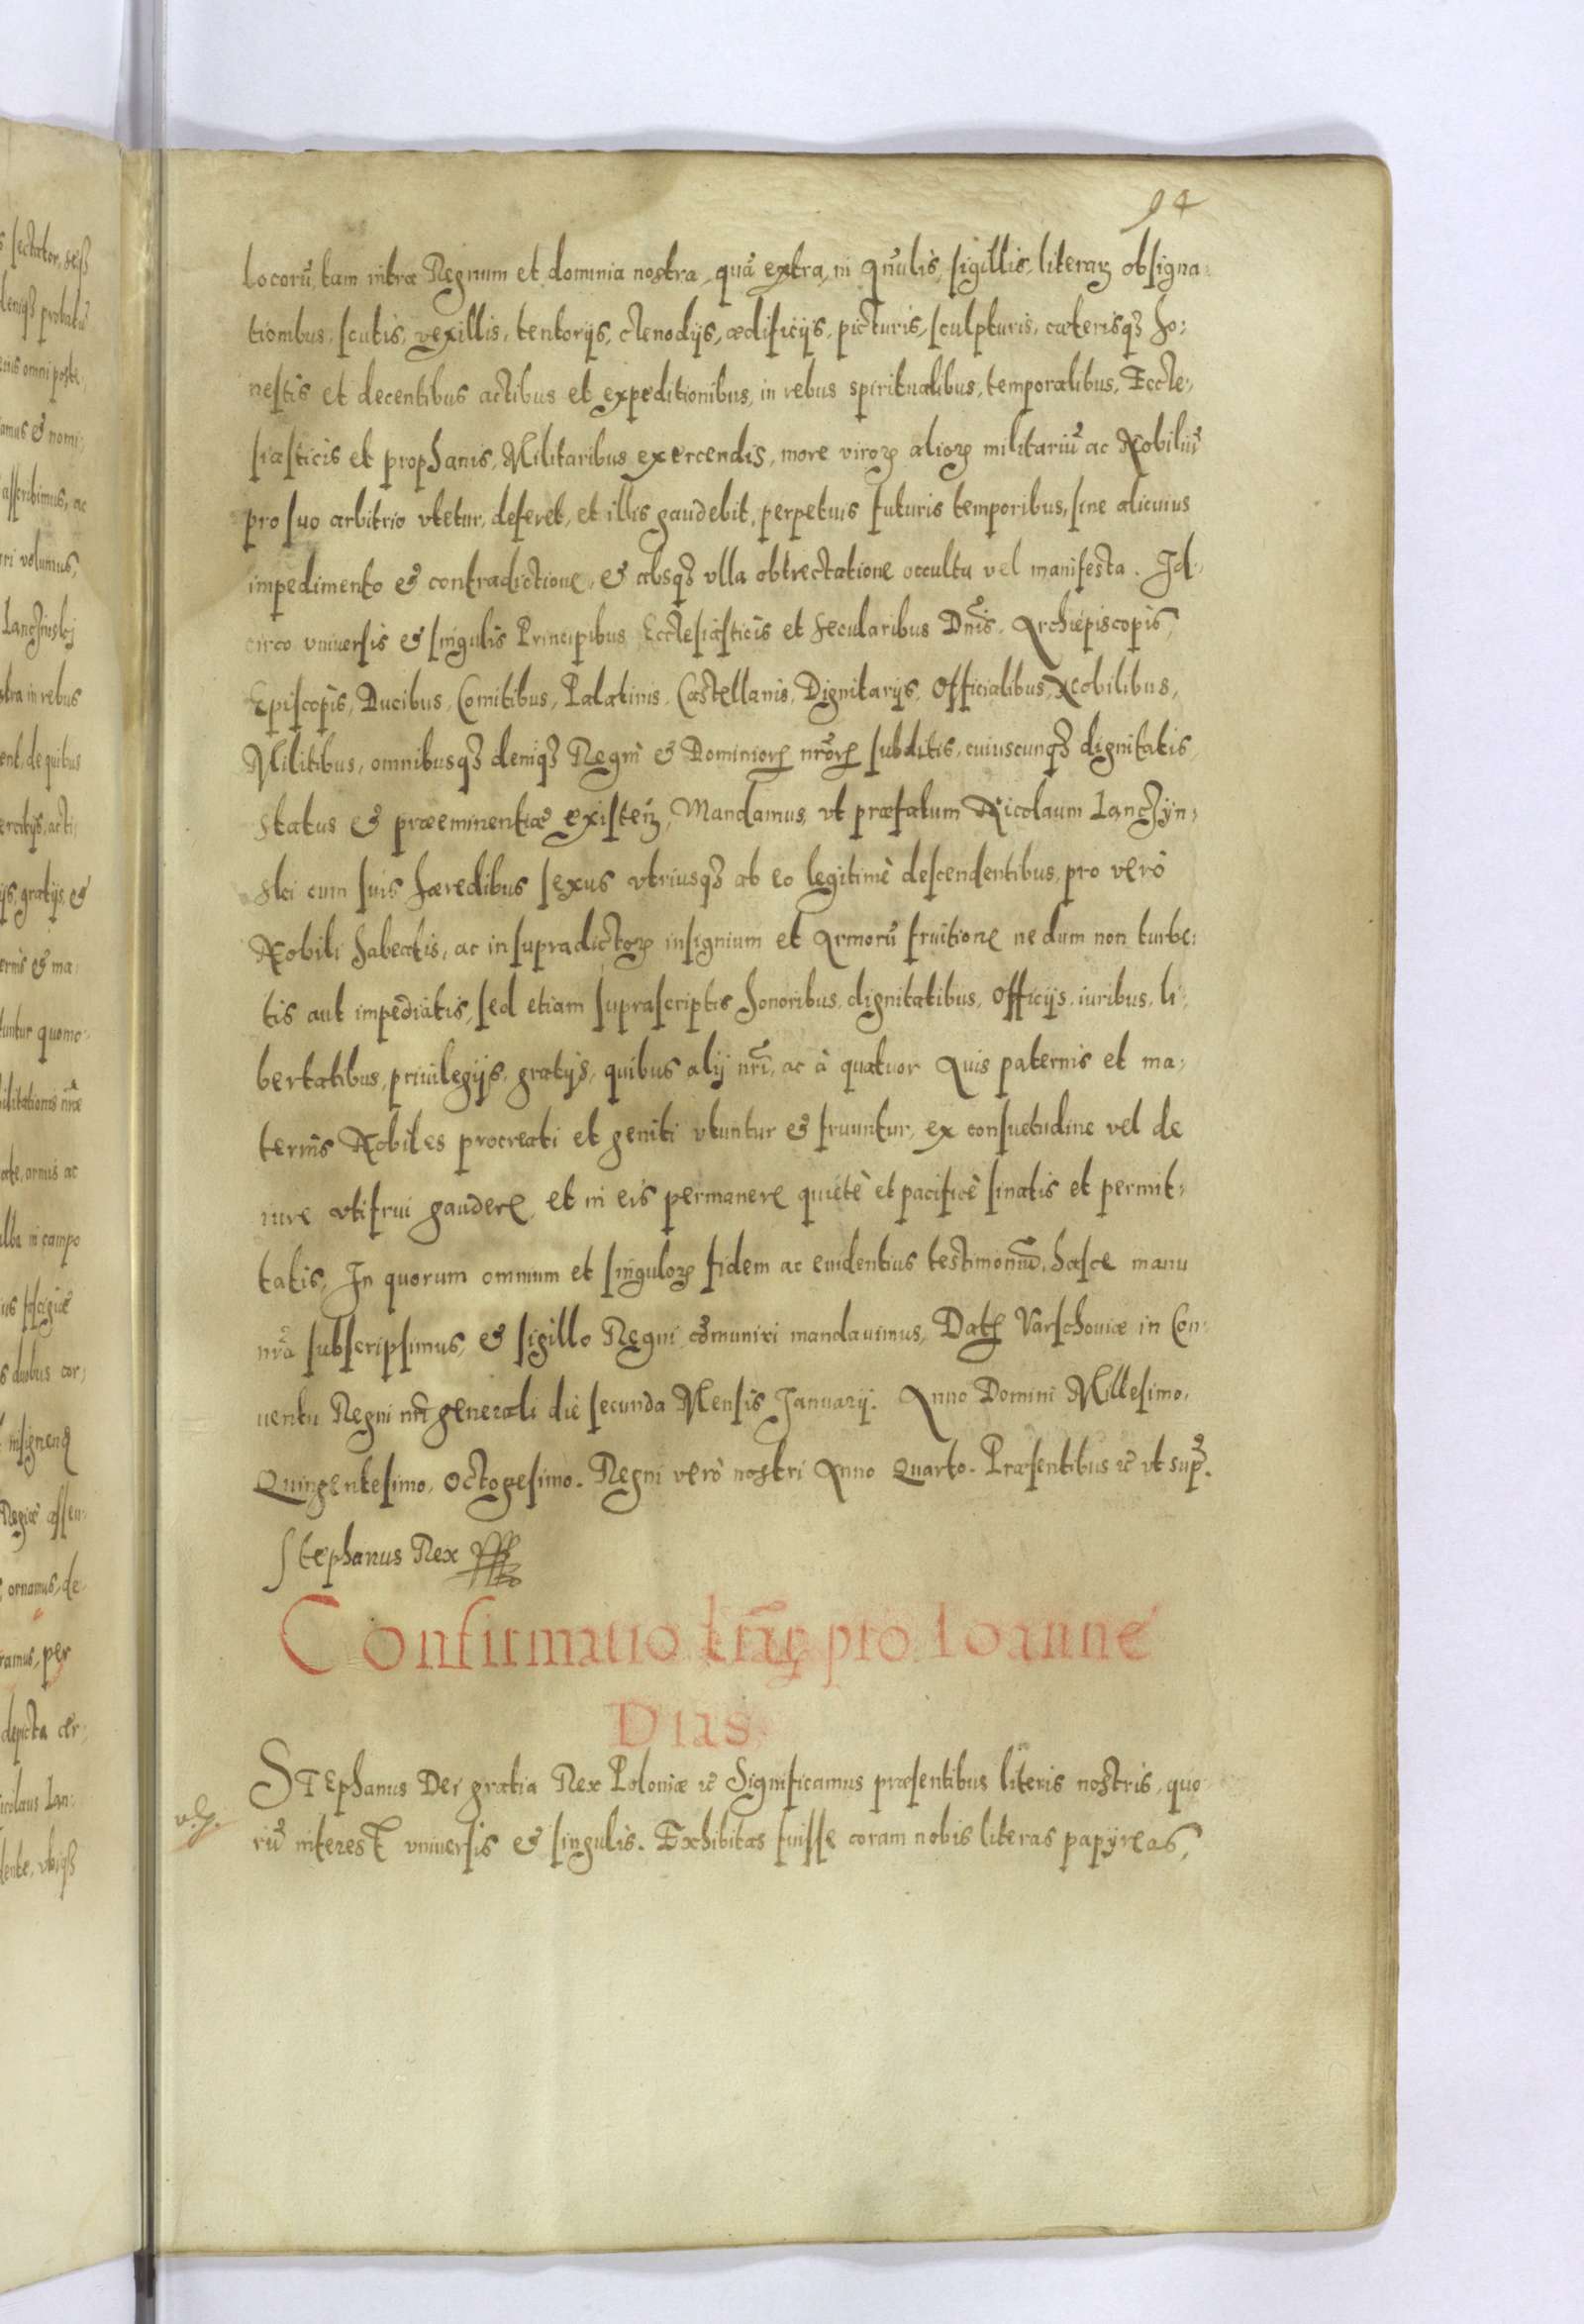 94
locorũ, tam intra Regnum et dominia nostra, quã extra, in Anulis, sigillis, literaꝝ obsigna-
tionibus, scutis, vexillis, tentorijs, clenodijs, ædificijs, picturis, sculpturis, cæterisqꝫ ho-
nestis et decentibus actibus et expeditionibus, in rebus spiritualibus, temporalibus, Eccle-
siasticis et prophanis, Militaribus exercendis, more viroꝝ alioꝝ militariũ ac Nobiliũ
pro suo arbitrio vtetur, deferet, et illis gaudebit, perpetuis futuris temporibus, sine alicuius
impedimento & contradictione, & absqꝫ vlla obtrectatione occulta vel manifesta. Id-
circo vniuersis & singulis Principibus Ecclesiasticis et secularibus Dnis̃, Archiepiscopis,
Episcopis, Ducibus, Comitibus, Palatinis, Castellanis, Dignitarijs, Officialibus, Nobilibus,
Militibus, omnibusqꝫ deniqꝫ Regni & Dominioꝝ nrõꝝ subditis, cuiuscunqꝫ dignitatis,
status & præeminentiæ existeñ, Mandamus, vt præfatum Nicolaum Lanczyn-
ski cum suis hæredibus sexus vtriusqꝫ ab eo legitimè descendentibus, pro verò
Nobili habeatis, ac in supradictoꝝ insignium et Armorũ fruitione ne dum non turbe-
tis aut impediatis, sed etiam suprascriptis honoribus, dignitatibus, Officijs, iuribus, li-
bertatibus, priuilegijs, gratijs, quibus alij nrĩ, ac à quatuor Auis paternis et ma-
ternis Nobiles procreati et geniti vtuntur & fruuntur, ex consuetudine vel de
iure vtifrui gaudere, et in eis permanere quietè et pacificè sinatis et permit-
tatis, In quorum omnium et singuloꝝ fidem ac euidentius testimoniũ, hasce manu
nrã subscripsimus, & sigillo Regni cõmuniri mandauimus, Datꝫ Varschouiæ in Con-
uentu Regni nrĩ generali die secunda Mensis Januarij. Anno Domini Millesimo,
Quingentesimo, Octogesimo. Regni verò nostri Anno Quarto. Præsentibus ꝛc vt supꝰ.
Stephanus Rex
Confirmatio lrãꝝ pro Ioanne
Dias
STEphanus Dei gratia Rex Poloniæ ꝛc Significamus præsentibus literis nostris, quo-
rũ interest vniuersis & singulis. Exhibitas fuisse coram nobis literas papyreas,